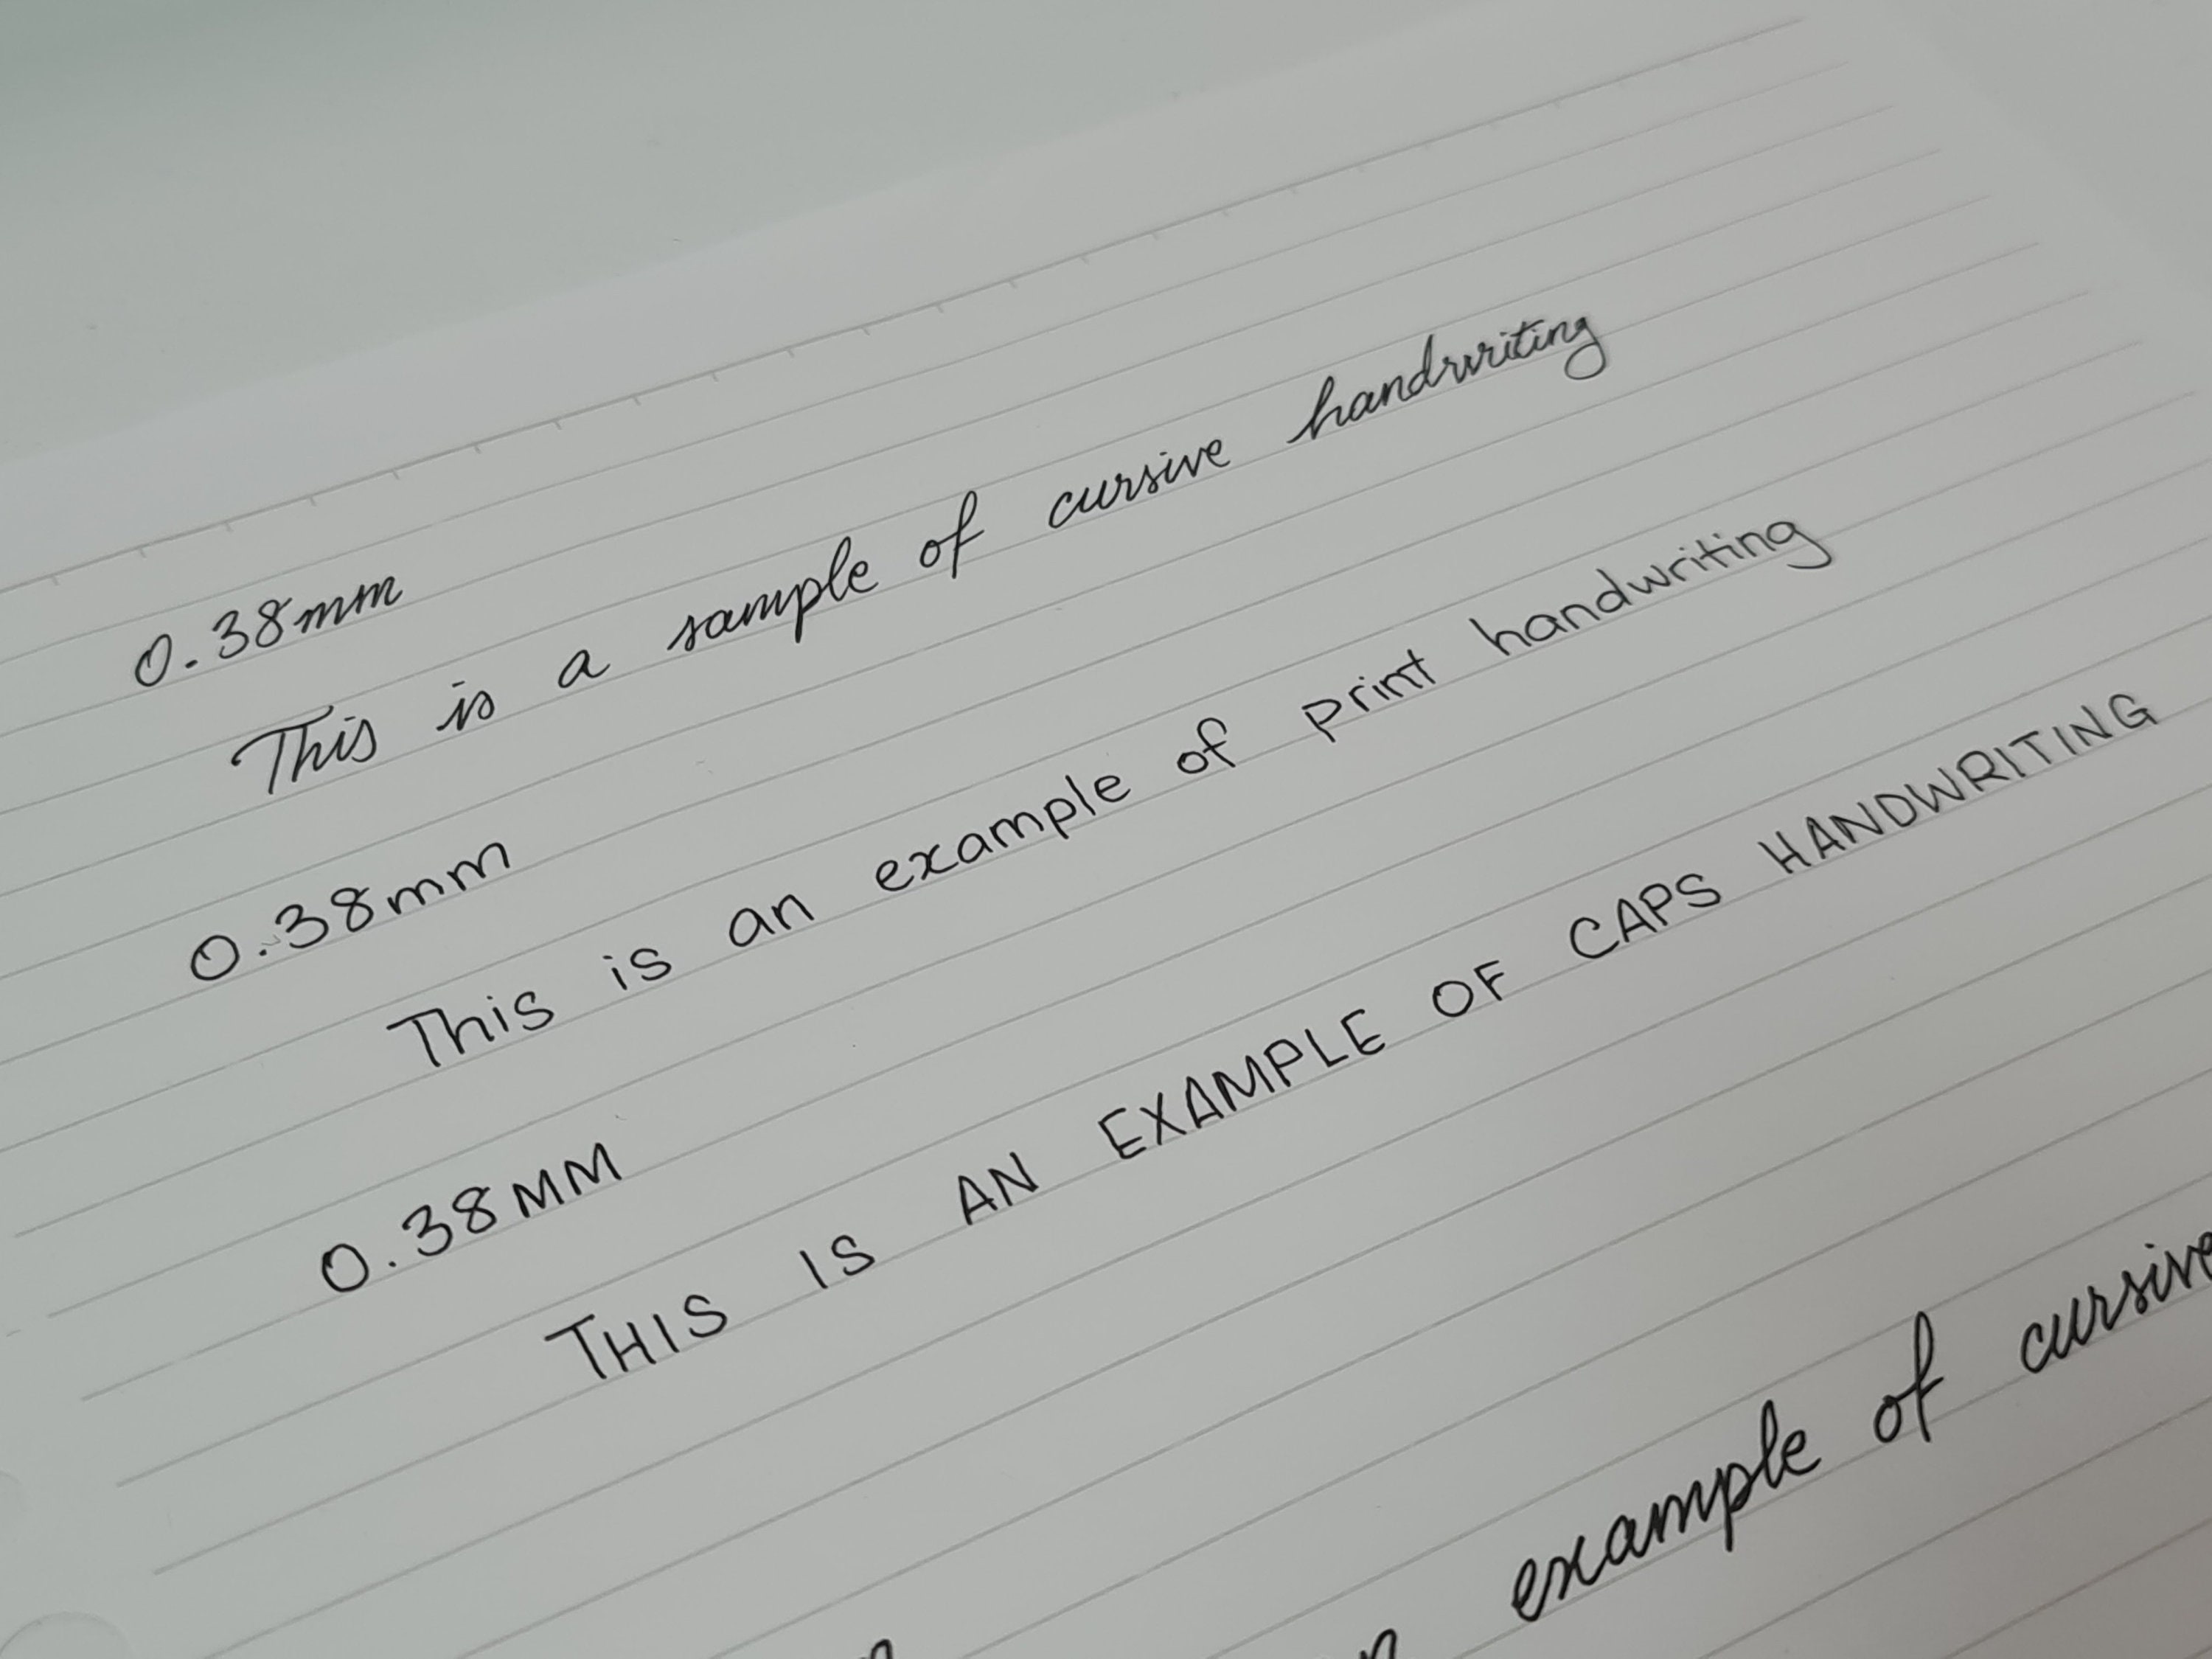 0.38mm
This is a sample of cursive handwriting
0.38mm
This is an example of print handwriting
0.38MM
THIS IS AN EXAMPLE OF CAPS HANDWRITING
example of cursive